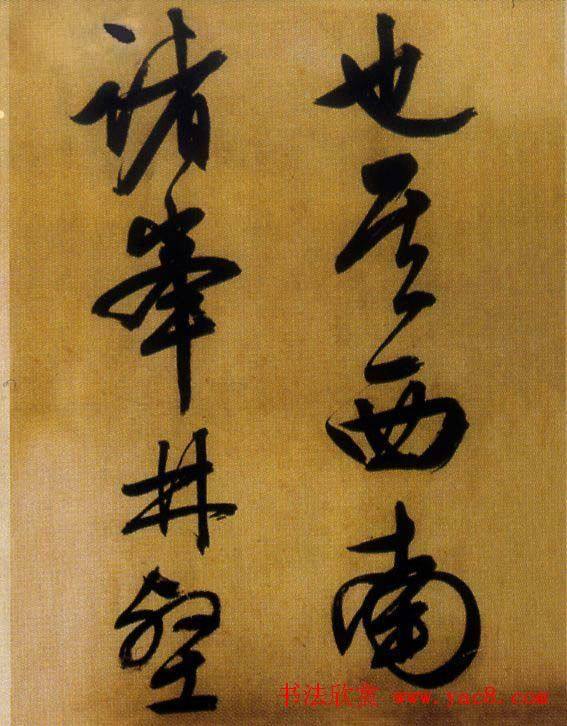 也其西南
諸峯林壑
书法欣赏 www.yac8.com